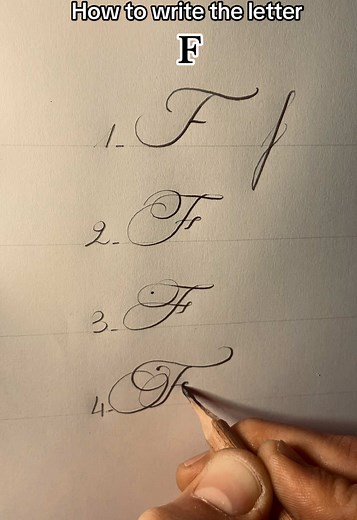 How to write the letter
F
1- F f
2- F
3- F
4- F